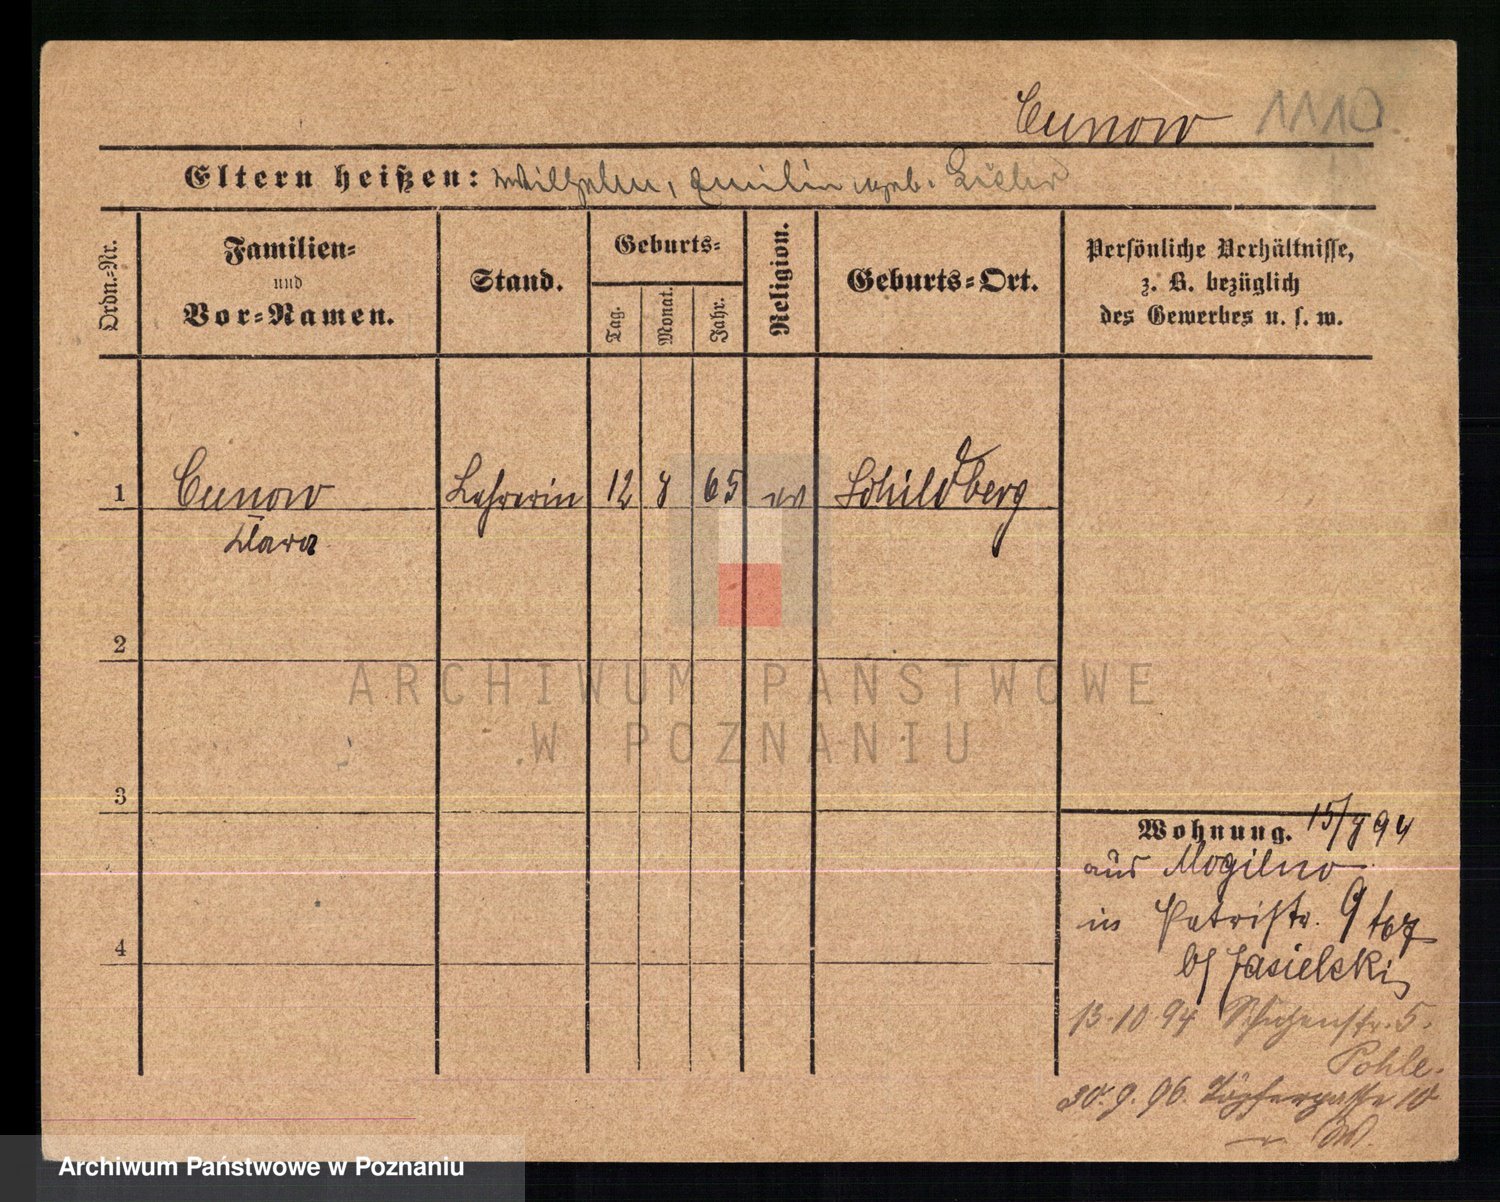 Cunow 1110.
Eltern heißen: Wilhelm, Emilie geb.
Ordn.=Nr.
Familien=
und
Vor=Namen.
Stand.
Geburts=
Tag.
Monat.
Jahr.
Religion.
Geburts=Ort.
Persönliche Verhältnisse,
z. B. bezüglich
des Gewerbes u. s. w.
1 Cunow Lehrerin 12 8 65 ev Schildberg
Klara
2
ARCHIWUM PAŃSTWOWE
W POZNANIU
3
Wohnung. 15/8 94
aus Mogilno
in Petristr. 9
bei Jasielski
13.10 94 Schützenstr. 5.
Pohle.
30.9.96. Töpfergasse 10
4
Archiwum Państwowe w Poznaniu